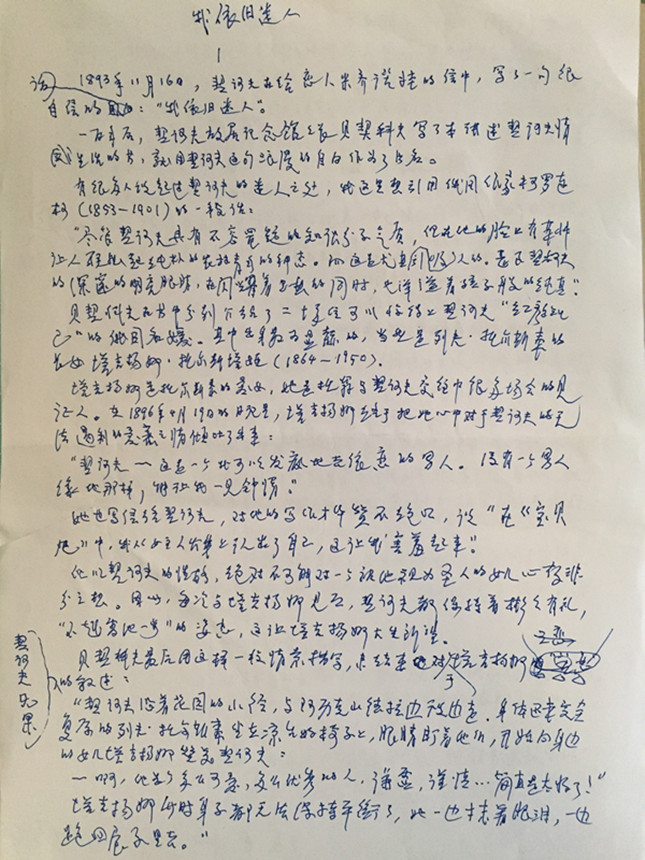 我依旧迷人
1
1893年11月16日，契诃夫在给恋人米齐诺娃的信中，写了一句很
自信的："我依旧迷人"。
一百年后，契诃夫故居纪念馆馆长贝契科夫写了本讲述契诃夫情
感生活的书，就用契诃夫这句浪漫的自白作为了书名。
有很多人谈起过契诃夫的迷人之处，我这里想引用俄国画家柯罗文
(1853—1901)的一段话：
"尽管契诃夫具有不容置疑的知识分子气质，但在他的脸上有某种
让人联想起纯朴的农村青年的神态。而这是尤其吸引人的。甚至契诃夫
的深邃的明亮眼睛，在闪烁着思想的同时，也洋溢着孩子般的纯真"。
贝契科夫在书中分别介绍了二十多位可以称得上契诃夫"红颜知
己"的俄国名媛。其中出身最显赫的，当然是列夫·托尔斯泰的
长女塔吉扬娜·托尔斯塔娅(1864—1950)。
塔吉扬娜是托尔斯泰的爱女，她是托翁与契诃夫交往中很多场合的见
证人。在1896年4月19日的日记里，塔吉扬娜终于把她心中对于契诃夫的无
法遏制的爱慕之情倾吐了出来：
"契诃夫——这是一个我可以发疯地去依恋的男人。没有一个男人
像他那样，能让我一见钟情。"
她也写信给契诃夫，对他的写作才华赞不绝口，说"在《宝贝
儿》中，我从女主人公身上认出了自己，这让我害羞起来"。
但以契诃夫的性格，绝对不可能对一个被他视为圣人的女儿心存非
分之想。因此，每次与塔吉扬娜见面，契诃夫都保持着彬彬有礼，
"不越雷池一步"的姿态，这让塔吉扬娜大失所望。
贝契科夫最后用这样一段情景描写，来结束他对塔吉扬娜
的叙述：
契诃夫
"契诃夫沿着花园的小径，与阿历克山德拉边走边谈。身体还未完全
复原的列夫·托尔斯泰坐在凉台的椅子上，眼睛盯着他们，开始向身边
的女儿塔吉扬娜赞美契诃夫：
—啊，他是个多么可爱，多么优秀的人，谦虚，谨慎…简直是太好了！"
塔吉扬娜此时身子都无法保持平衡了，她一边抹着眼泪，一边
跑回屋子里去。"